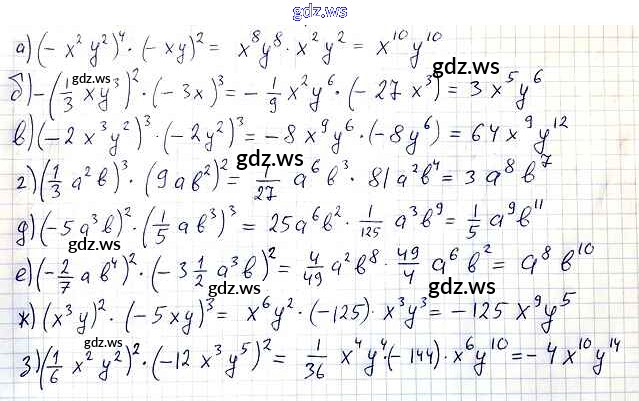 gdz.ws
а) (- x² y²)⁴ · (- xy)² = x⁸y⁸ · x² y² = x¹⁰y¹⁰
gdz.ws
б) -(1/3 xy³)² · (- 3x)³ = - 1/9 x² y⁶ · (- 27 x³) = 3 x⁵ y⁶
в) (-2 x³y²)³ · (-2y²)³ = -8 x⁹ y⁶ · (-8y⁶) = 64 x⁹ y¹²
gdz.ws
г) (1/3 a² b)³ · (9 a b²)² = 1/27 a⁶ b³ · 81 a² b⁴ = 3 a⁸ b⁷
д) (-5 a³ b)² · (1/5 a b³)³ = 25 a⁶ b² · 1/125 a³ b⁹ = 1/5 a⁹ b¹¹
gdz.ws gdz.ws
е) (- 2/7 a b⁴)² · (-3 1/2 a³ b)² = 4/49 a² b⁸ · 49/4 a⁶ b² = a⁸ b¹⁰
gdz.ws
ж) (x³ y)² · (-5xy)³ = x⁶ y² · (-125) · x³ y³ = -125 x⁹ y⁵
gdz.ws gdz.ws
з) (1/6 x² y²)² · (-12 x³ y⁵)² = 1/36 x⁴ y⁴ · (-144) · x⁶ y¹⁰ = - 4 x¹⁰ y¹⁴